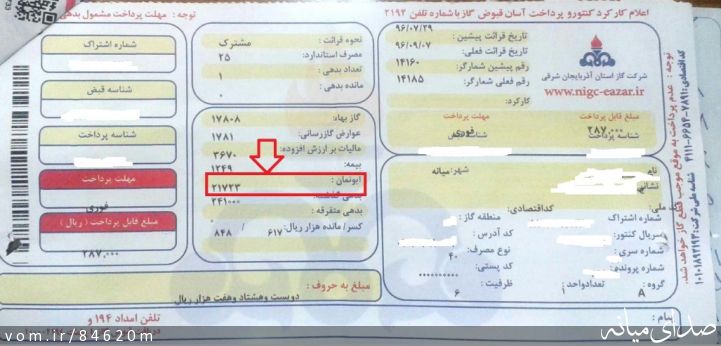 اعلام کارکرد کنتورو پرداخت آسان قبوض گاز با شماره تلفن ۲۱۹۲
توجه :
مهلت پرداخت مشمول بدهی
تاریخ قرائت پیشین : ۹۶/۰۷/۲۹
تاریخ قرائت فعلی : ۹۶/۰۹/۰۷
رقم پیشین شمارگر: ۱۴۱۶۰
رقم فعلی شمارگر: ۱۴۱۸۵
کارکرد:
شرکت گاز استان آذربایجان شرقی
www.nigc-eazar.ir
مبلغ قابل پرداخت
مهلت پرداخت
۲۸۷,۰۰۰
فوری
شناسه پرداخت
شناسه قبض
نام
نشانی
شهر: میانه
کد ملی:
کداقتصادی:
شماره اشتراک
منطقه گاز :
سریال کنتور:
کد آدرس :
شماره سری :
نوع مصرف: ۴۰
شماره پرونده:
کد پستی: ۰۰۰۰۰۰۰۰۰۰
گروه : A
تعدادواحد: ۱
ظرفیت : ۶
پیام :
نحوه قرائت : مشترک
مصرف استاندارد: ۲۵
تعداد بدهی : ۱
مانده بدهی : ۰
گاز بهاء: ۱۷۸۰۸
عوارض گازرسانی: ۱۷۸۱
مالیات بر ارزش افزوده: ۳۶۷۰
بیمه: ۱۲۴۹
آبونمان : ۲۱۷۲۳
بدهی گذشته: ۲۴۱۰۰۰
بدهی متفرقه : ۰
کسر/ مانده هزار ریال: ۶۱۷ ۸۴۸
مبلغ به حروف :
دویست وهشتاد وهفت هزار ریال
شماره اشتراک
شناسه قبض
شناسه پرداخت
مهلت پرداخت
فوری
مبلغ قابل پرداخت ( ریال )
۲۸۷,۰۰۰
تلفن امداد ۱۹۴ و
توجه : عدم پرداخت به موقع موجب قطع گاز خواهد شد.
کداقتصادی: ۴۱۱۱-۶۶۵۴-۷۸۹۱
شناسه ملی شرکت: ۱۰۱۰۱۸۹۲۱۹۳
صدای میانه
vom.ir/84620m